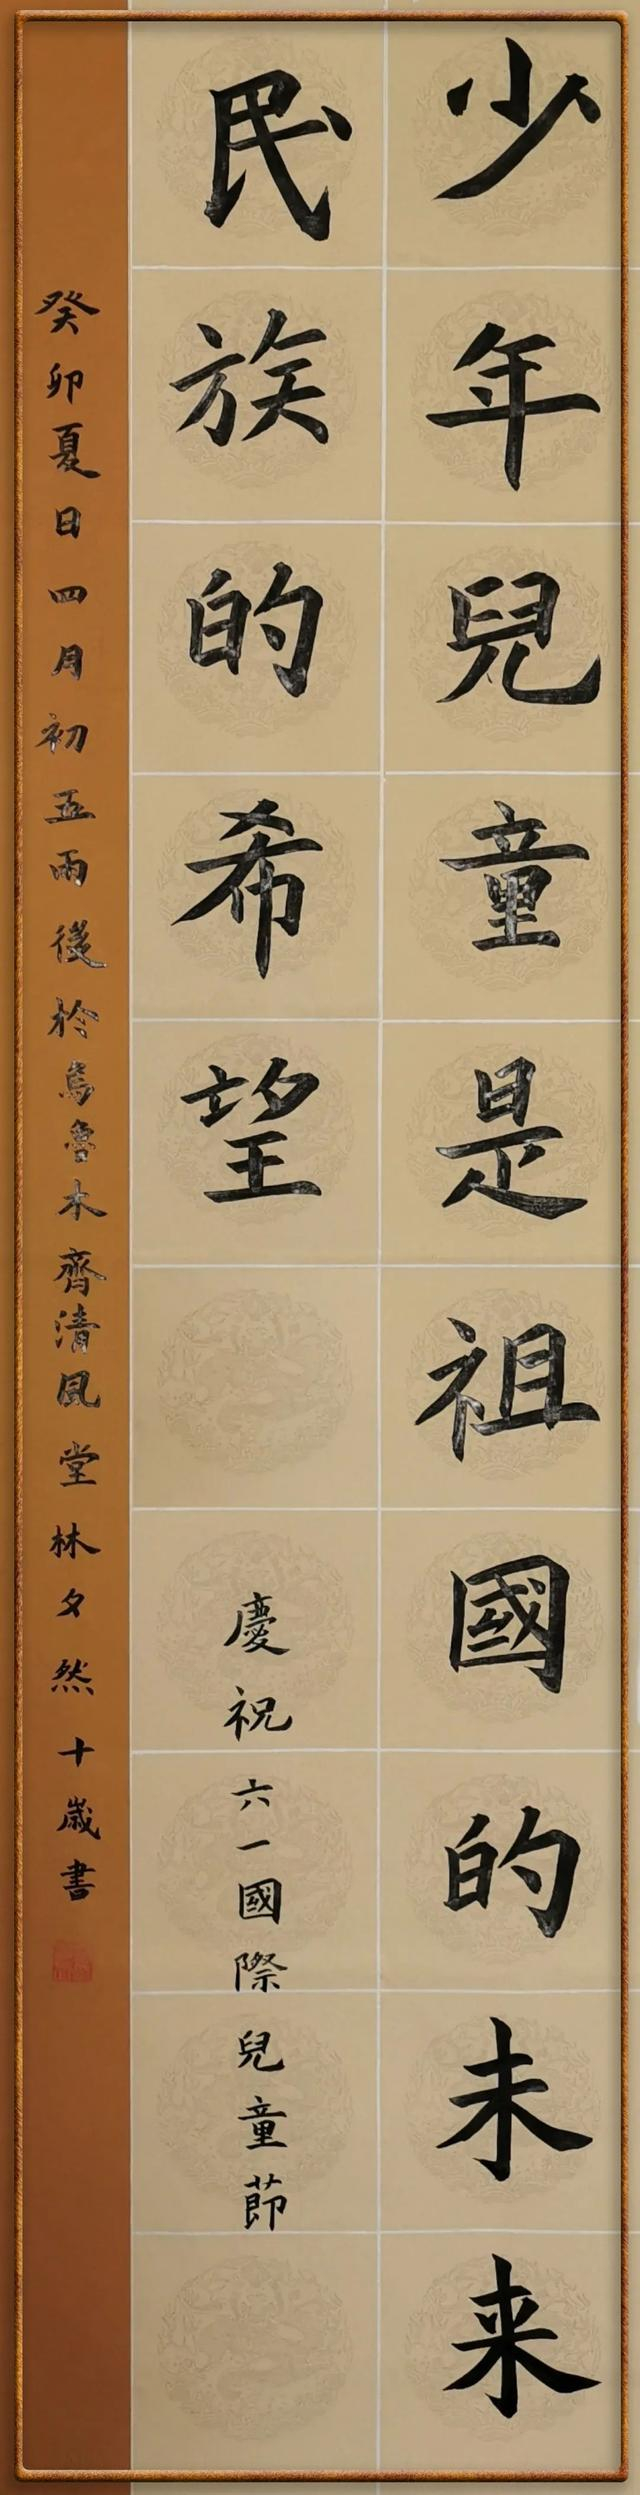 少年兒童是祖國的未来
民族的希望
慶祝六一國際兒童節
癸卯夏日四月初五雨後於烏魯木齊清風堂林夕然十歲書